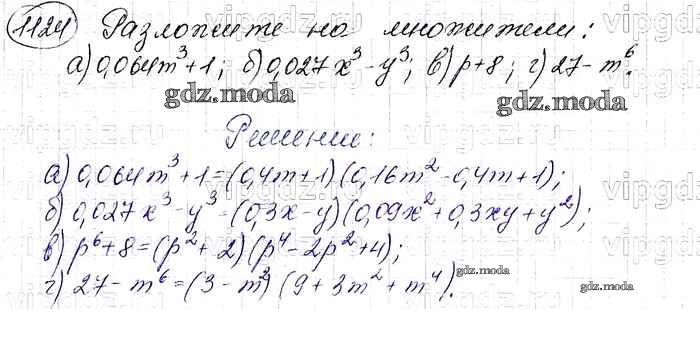 1124 Разложите на множители:
а) 0,064m³+1; б) 0,027x³-y³; в) p+8; г) 27-m⁶.
gdz.moda gdz.moda
Решение:
а) 0,064m³+1=(0,4m+1)(0,16m²-0,4m+1);
б) 0,027x³-y³=(0,3x-y)(0,09x²+0,3xy+y²);
в) p⁶+8=(p²+2)(p⁴-2p²+4);
gdz.moda
г) 27-m⁶=(3-m²)(9+3m²+m⁴).
gdz.moda